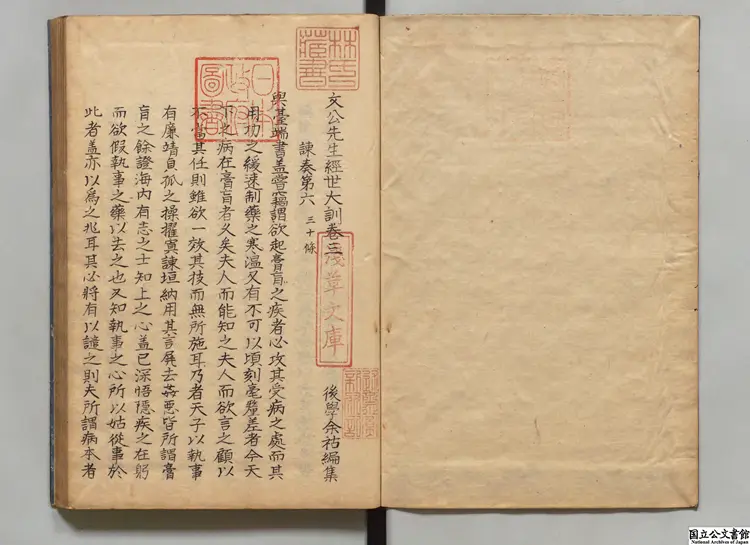 文公先生經世大訓卷三
後學余祐編集
諫奏第六 三十條
與臺端書蓋嘗竊謂欲起膏肓之疾者必攻其受病之處而其
用功之緩速制藥之寒溫又有不可以頃刻毫釐差者今天
下之病在膏肓者久矣夫人而能知之夫人而欲言之顧以
不當其任則雖欲一效其技而無所施耳乃者天子以執事
有廉靖負孤之操擢寘諫垣納用其言屏去姦惡皆所謂膏
肓之餘證海內有志之士知上之心蓋已深悟隱疾之在躬
而欲假執事之藥以去之也又知執事之心所以姑從事於
此者蓋亦以爲之兆耳其必將有以諠之則夫所謂病本者
林氏藏書
日本政府圖書
淺草文庫
国立公文書館
National Archives of Japan